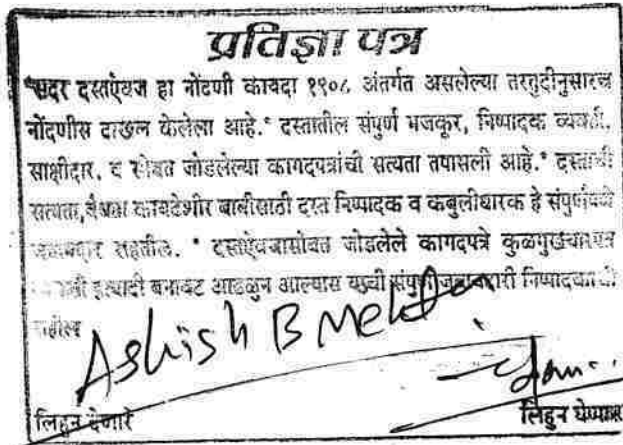 प्रतिज्ञा पत्र
"सदर दस्तऐवज हा नोंदणी कायदा १९०८ अंतर्गत असलेल्या तरतुदीनुसारच
नोंदणीस दाखल केलेला आहे. * दस्तातील संपुर्ण मजकूर, निष्पादक व्यक्ती,
साक्षीदार, व सोबत जोडलेल्या कागदपत्रांची सत्यता तपासली आहे. * दस्ताची
सत्यता, वैधता कायदेशीर बाबीसाठी दस्त निष्पादक व कबुलीधारक हे संपुर्णपणे
जबाबदार राहतील. * दस्तऐवजासोबत जोडलेले कागदपत्रे कुळमुखत्यारपत्र
इत्यादी बनावट आढळुन आल्यास याची संपुर्ण जबाबदारी निष्पादकाची
राहील
Ashish B Mehta
लिहून देणारे
लिहुन घेणारे